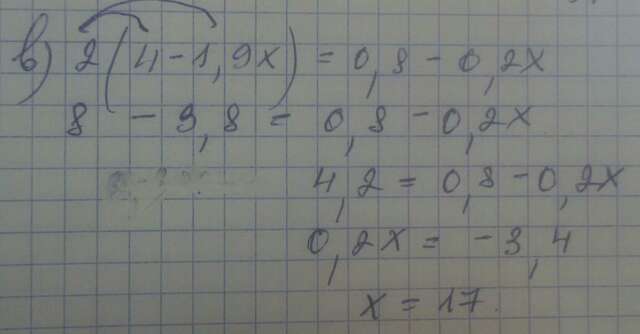 в) 2(4-1,9x) = 0,8 - 0,2x
8 - 3,8 = 0,8 - 0,2x
4,2 = 0,8 - 0,2x
0,2x = -3,4
x = 17.